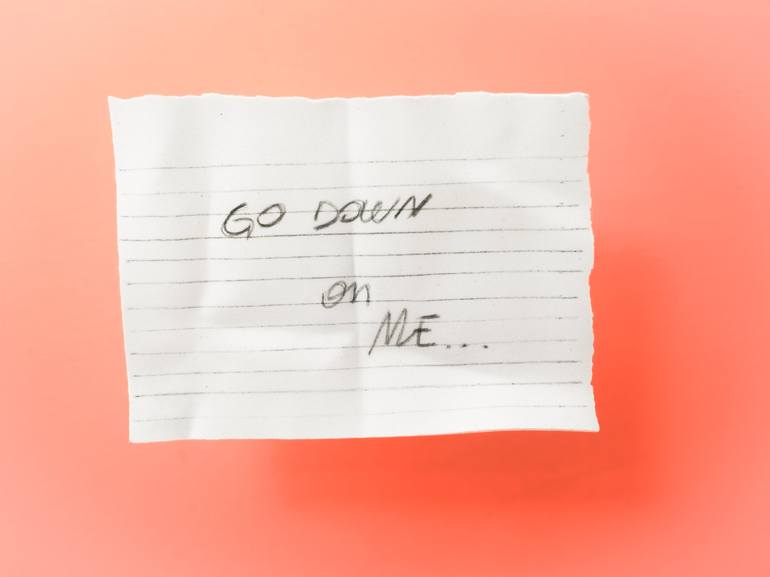 GO DOWN
on
ME...